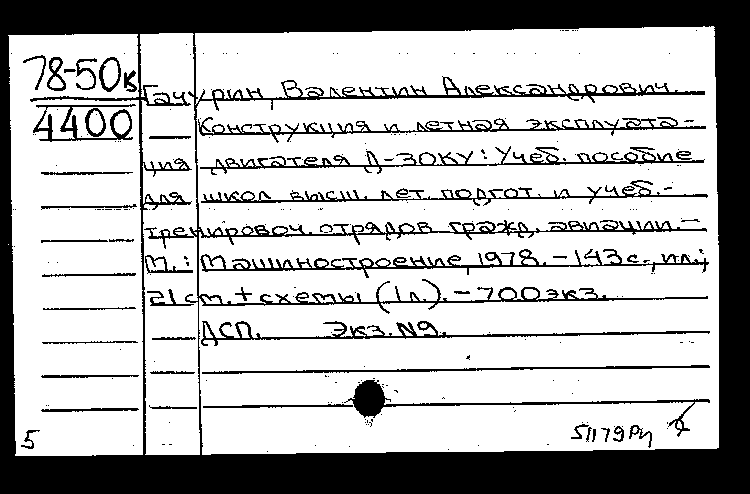 78-50к
4400
Гачурин, Валентин Александрович.
Конструкция и летная эксплуата-
ция двигателя Д-30КУ: Учеб. пособие
для школ высш. лет. подгот. и учеб.-
тренировоч. отрядов гражд. авиации. –
М.: Машиностроение, 1978. – 143 с., ил.;
21 см. + схемы (1 л.). – 700 экз.
ДСП. Экз. №9.
5